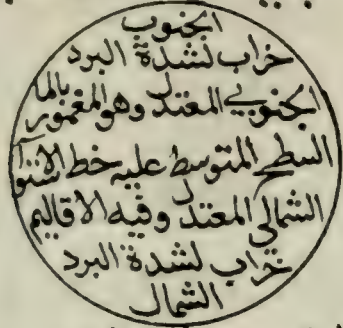 الجنوب
خراب لشدة البرد
الجنوبي المعتدل وهو المغمور بالما
السطح المتوسط عليه خط الاستوآ
الشمالى المعتدل وفيه الاقاليم
خراب لشدة البرد
الشمال